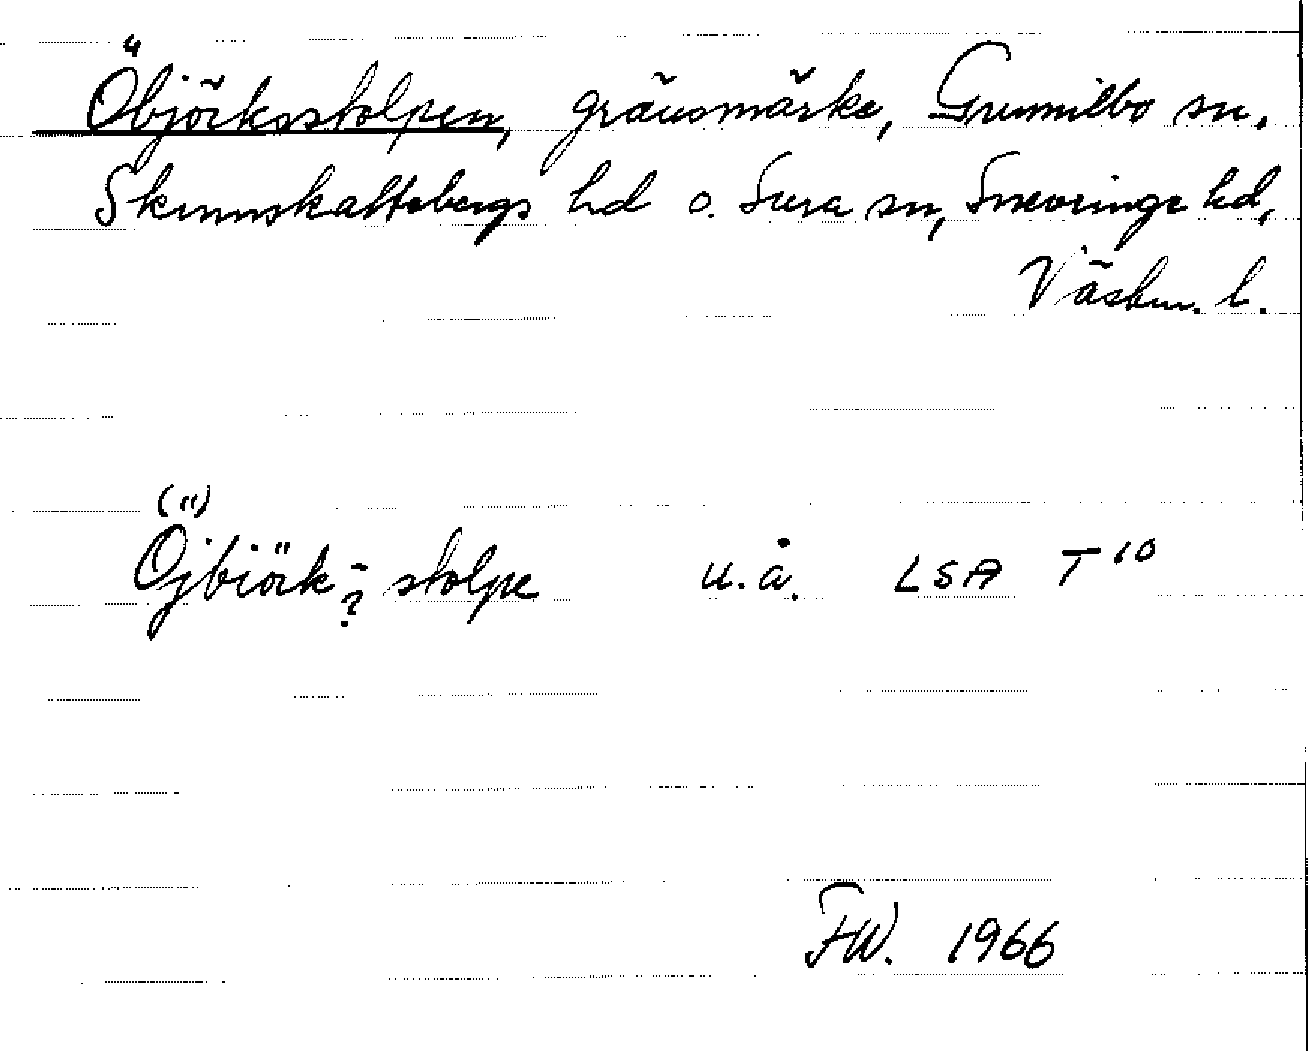 Öbjörksstolpen, gränsmärke, Gunnilbo sn,
Skinnskattebergs hd o. Sura sn, Snevringe hd,
Västm. l.
(")
Öjbiörk-? stolpe u. å. LSA T 10
FW. 1966